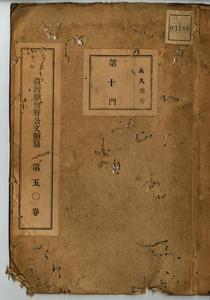 永久保存
第十門
臺灣總督府公文類纂 第五〇卷
03186